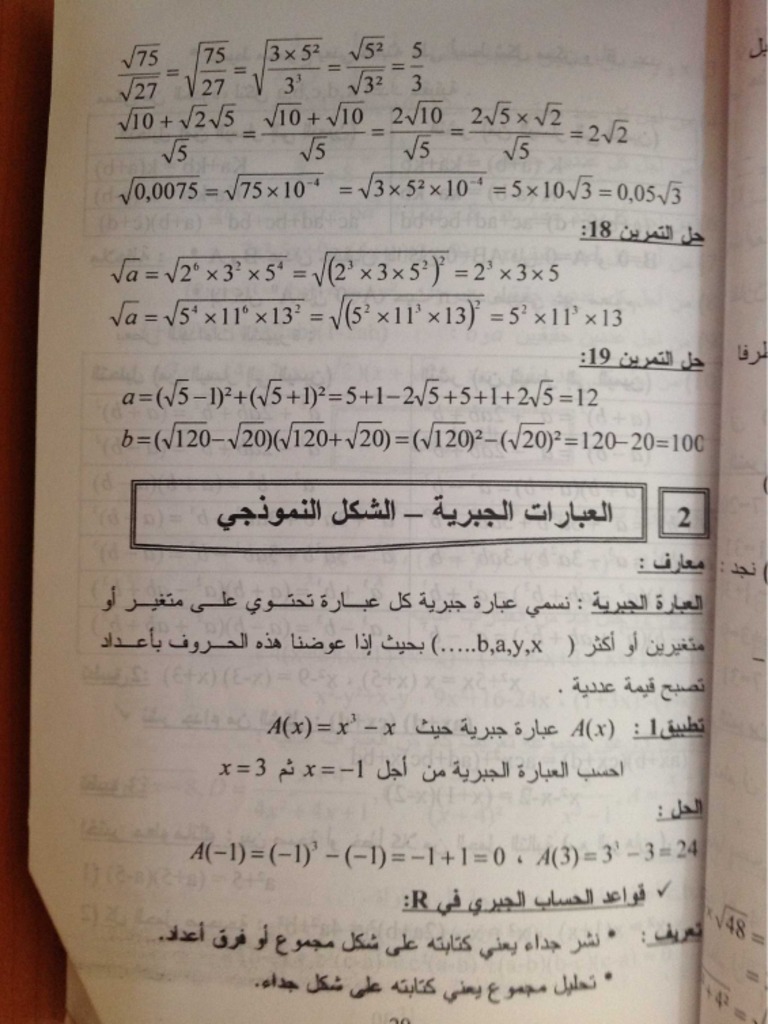 √75/√27 = √(75/27) = √((3×5²)/3³) = √5²/√3² = 5/3
(√10 + √2√5)/√5 = (√10 + √10)/√5 = 2√10/√5 = (2√5 × √2)/√5 = 2√2
√0,0075 = √(75×10⁻⁴) = √(3×5²×10⁻⁴) = 5×10√3 = 0,05√3
حل التمرين 18:
√a = √(2⁶×3²×5⁴) = √((2³×3×5²)²) = 2³×3×5
√a = √(5⁴×11⁶×13²) = √((5²×11³×13)²) = 5²×11³×13
حل التمرين 19:
a=(√5−1)²+(√5+1)²=5+1−2√5+5+1+2√5=12
b=(√120−√20)(√120+√20)=(√120)²−(√20)²=120−20=100
2 العبارات الجبرية – الشكل النموذجي
معارف :
العبارة الجبرية : نسمي عبارة جبرية كل عبارة تحتوي على متغير أو
متغيرين أو أكثر ( b,a,y,x.....) بحيث إذا عوضنا هذه الحروف بأعداد
تصبح قيمة عددية .
تطبيق1 : A(x) عبارة جبرية حيث A(x) = x³ − x
احسب العبارة الجبرية من أجل x = −1 ثم x = 3
الحل :
A(−1) = (−1)³ − (−1) = −1 + 1 = 0 ، A(3) = 3³ − 3 = 24
✓ قواعد الحساب الجبري في R:
تعريف : • نشر جداء يعني كتابته على شكل مجموع أو فرق أعداد.
• تحليل مجموع يعني كتابته على شكل جداء.
نجد :
√48